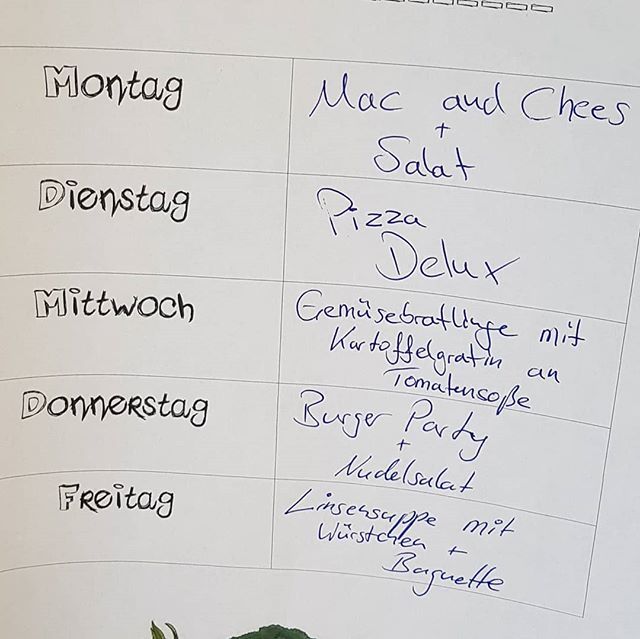 Montag
Mac and Chees
+
Salat
Dienstag
Pizza
Delux
Mittwoch
Gemüsebratlinge mit
Kartoffelgratin an
Tomatensoße
Donnerstag
Burger Party
+
Nudelsalat
Freitag
Linsensuppe mit
Würstchen +
Baguette